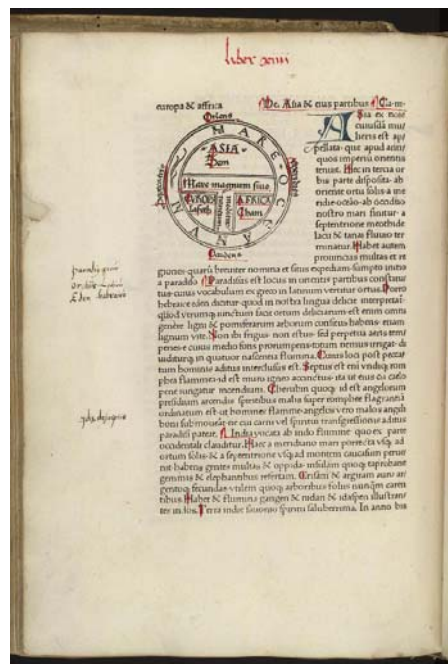 liber xiiii
europa & affrica
De Asia & eius partibus Ca·iii·
Oriens
MARE OCCEANUM
ASIA
Sem
Mare magnum siue
mediterraneum
EUROPA
Iafeth
AFRICA
Cham
Septentrio
Meridies
Occidens
Asia ex noie
cuiusdā mu/
lieris est ap/
pellata· que apud anti/
quos imperiū orientis
tenuit· Hec in tercia or
bis parte disposita· ab
oriente ortu solis· a me
ridie oceāo· ab occāo
nostro mari finitur· a
septentrione meothide
lacu & tanai fluuio ter
minatur· Habet autem
prouincias multas et re
giones· quarū breuiter nomina et situs expediam· sumpto initio
a paradiso Paradisus est locus in orientis partibus constitutus
tus· cuius vocabulum ex greco in latinum vertitur ortus· Porro
hebraice eden dicitur· quod in nostra lingua delicie interpretat̄·
quod vtrumq iunctum facit ortum deliciarum· est enim omni
genere ligni & pomiferarum arborum consitus· habens· etiam
lignum vite· Non ibi frigus· non estus· sed perpetua aeris tem/
peries· e cuius medio fons prorumpens· totum nemus irrigat· di
uiditurq in quatuor nascentia flumina· Cuius loci post peccat
tum hominis aditus interclusus est· Septus est eni vndiq rom
phea flammea· id est muro igneo accinctus· ita ut eius cū celo
pene iungatur incendium· Cherubin quoq id est angelorum
presidium arcendis spiritibus malis super romphee flagrantiā
ordinatum est· ut homines flamme· angelos vero malos angeli
boni submoueāt· ne cui carni vel spiritui transgressionis aditus
paradisi pateat· India vocata ab indo flumine quo ex parte
occidentali clauditur· Haec a meridiano mari porrecta vsq ad
ortum solis· & a septentrione vsq ad montem caucasum perue
nit· habens gentes multas & oppida· insulam quoq taprobane
gemmis & elephantibus refertam· Crisam & argiram auro ar
gentoq fecundas· vtilem quoq arboribus folijs nunq̄m caren
tibus· Habet & flumina gangen & indan & idaspen illustran/
tes indos· Terra indie fauonij spiritu saluberrima· In anno bis